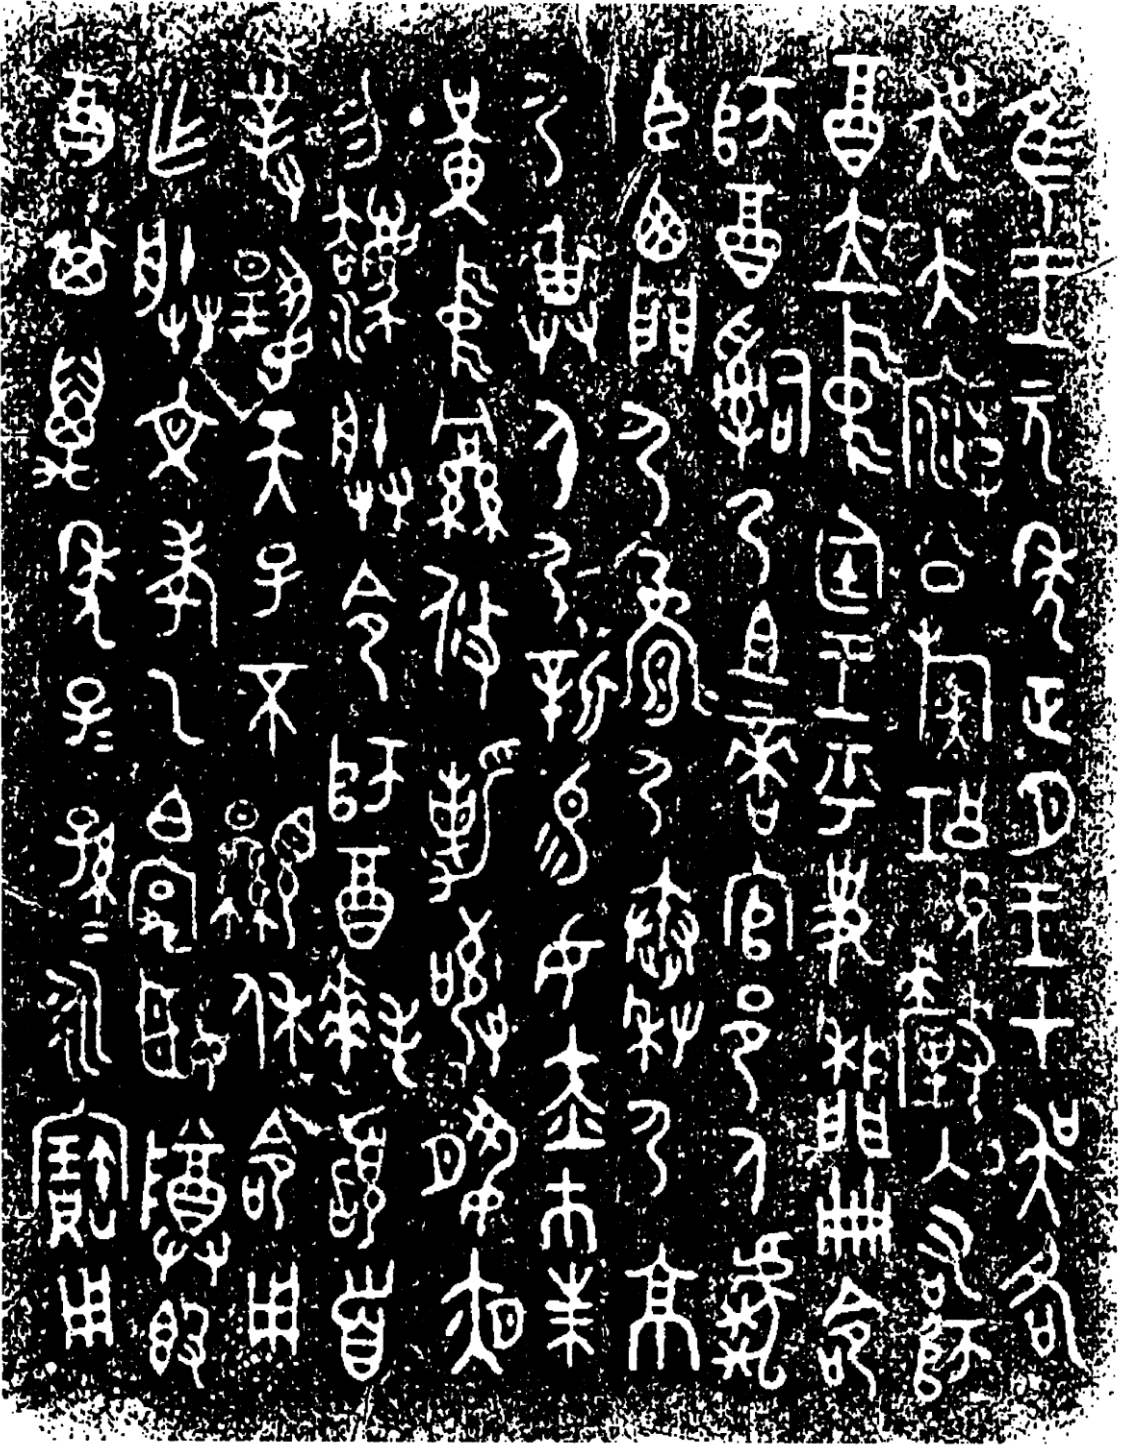 隹王元年正月王才吳各
吳大廟公族釐入右師
酉立中廷王乎史冊命
師酉𤔲乃且啻官邑人虎
臣西門尸尸秦尸京
尸畀人尸新易女赤巿朱
黃中絅攸勒敬夙夜
勿灋朕令師酉拜𩒨首
對揚天子不顯休命用
乍朕文考乙白宄姬尊𣪘
酉其萬年子=孫=永寶用